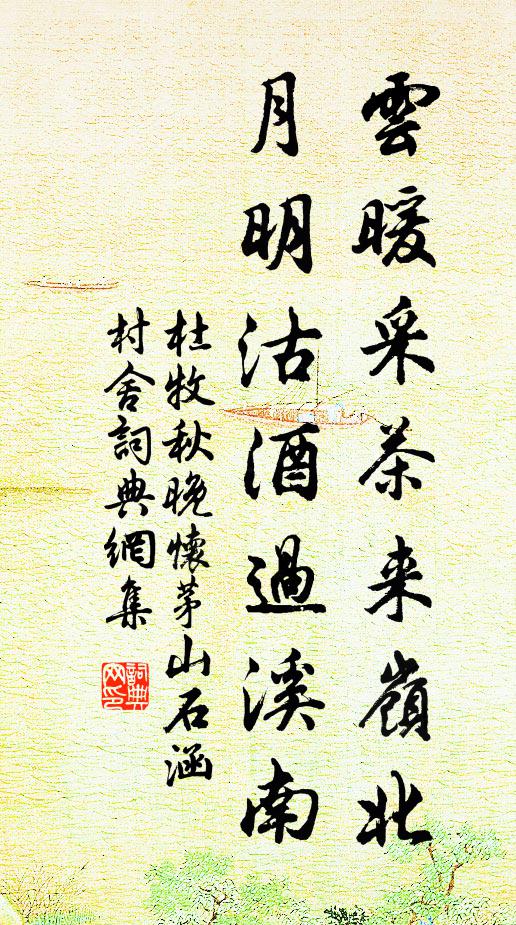 雲暖采茶来嶺北
月明沽酒過溪南
杜牧秋晚懷茅山石涵
村舍詞典網集
詞典网印